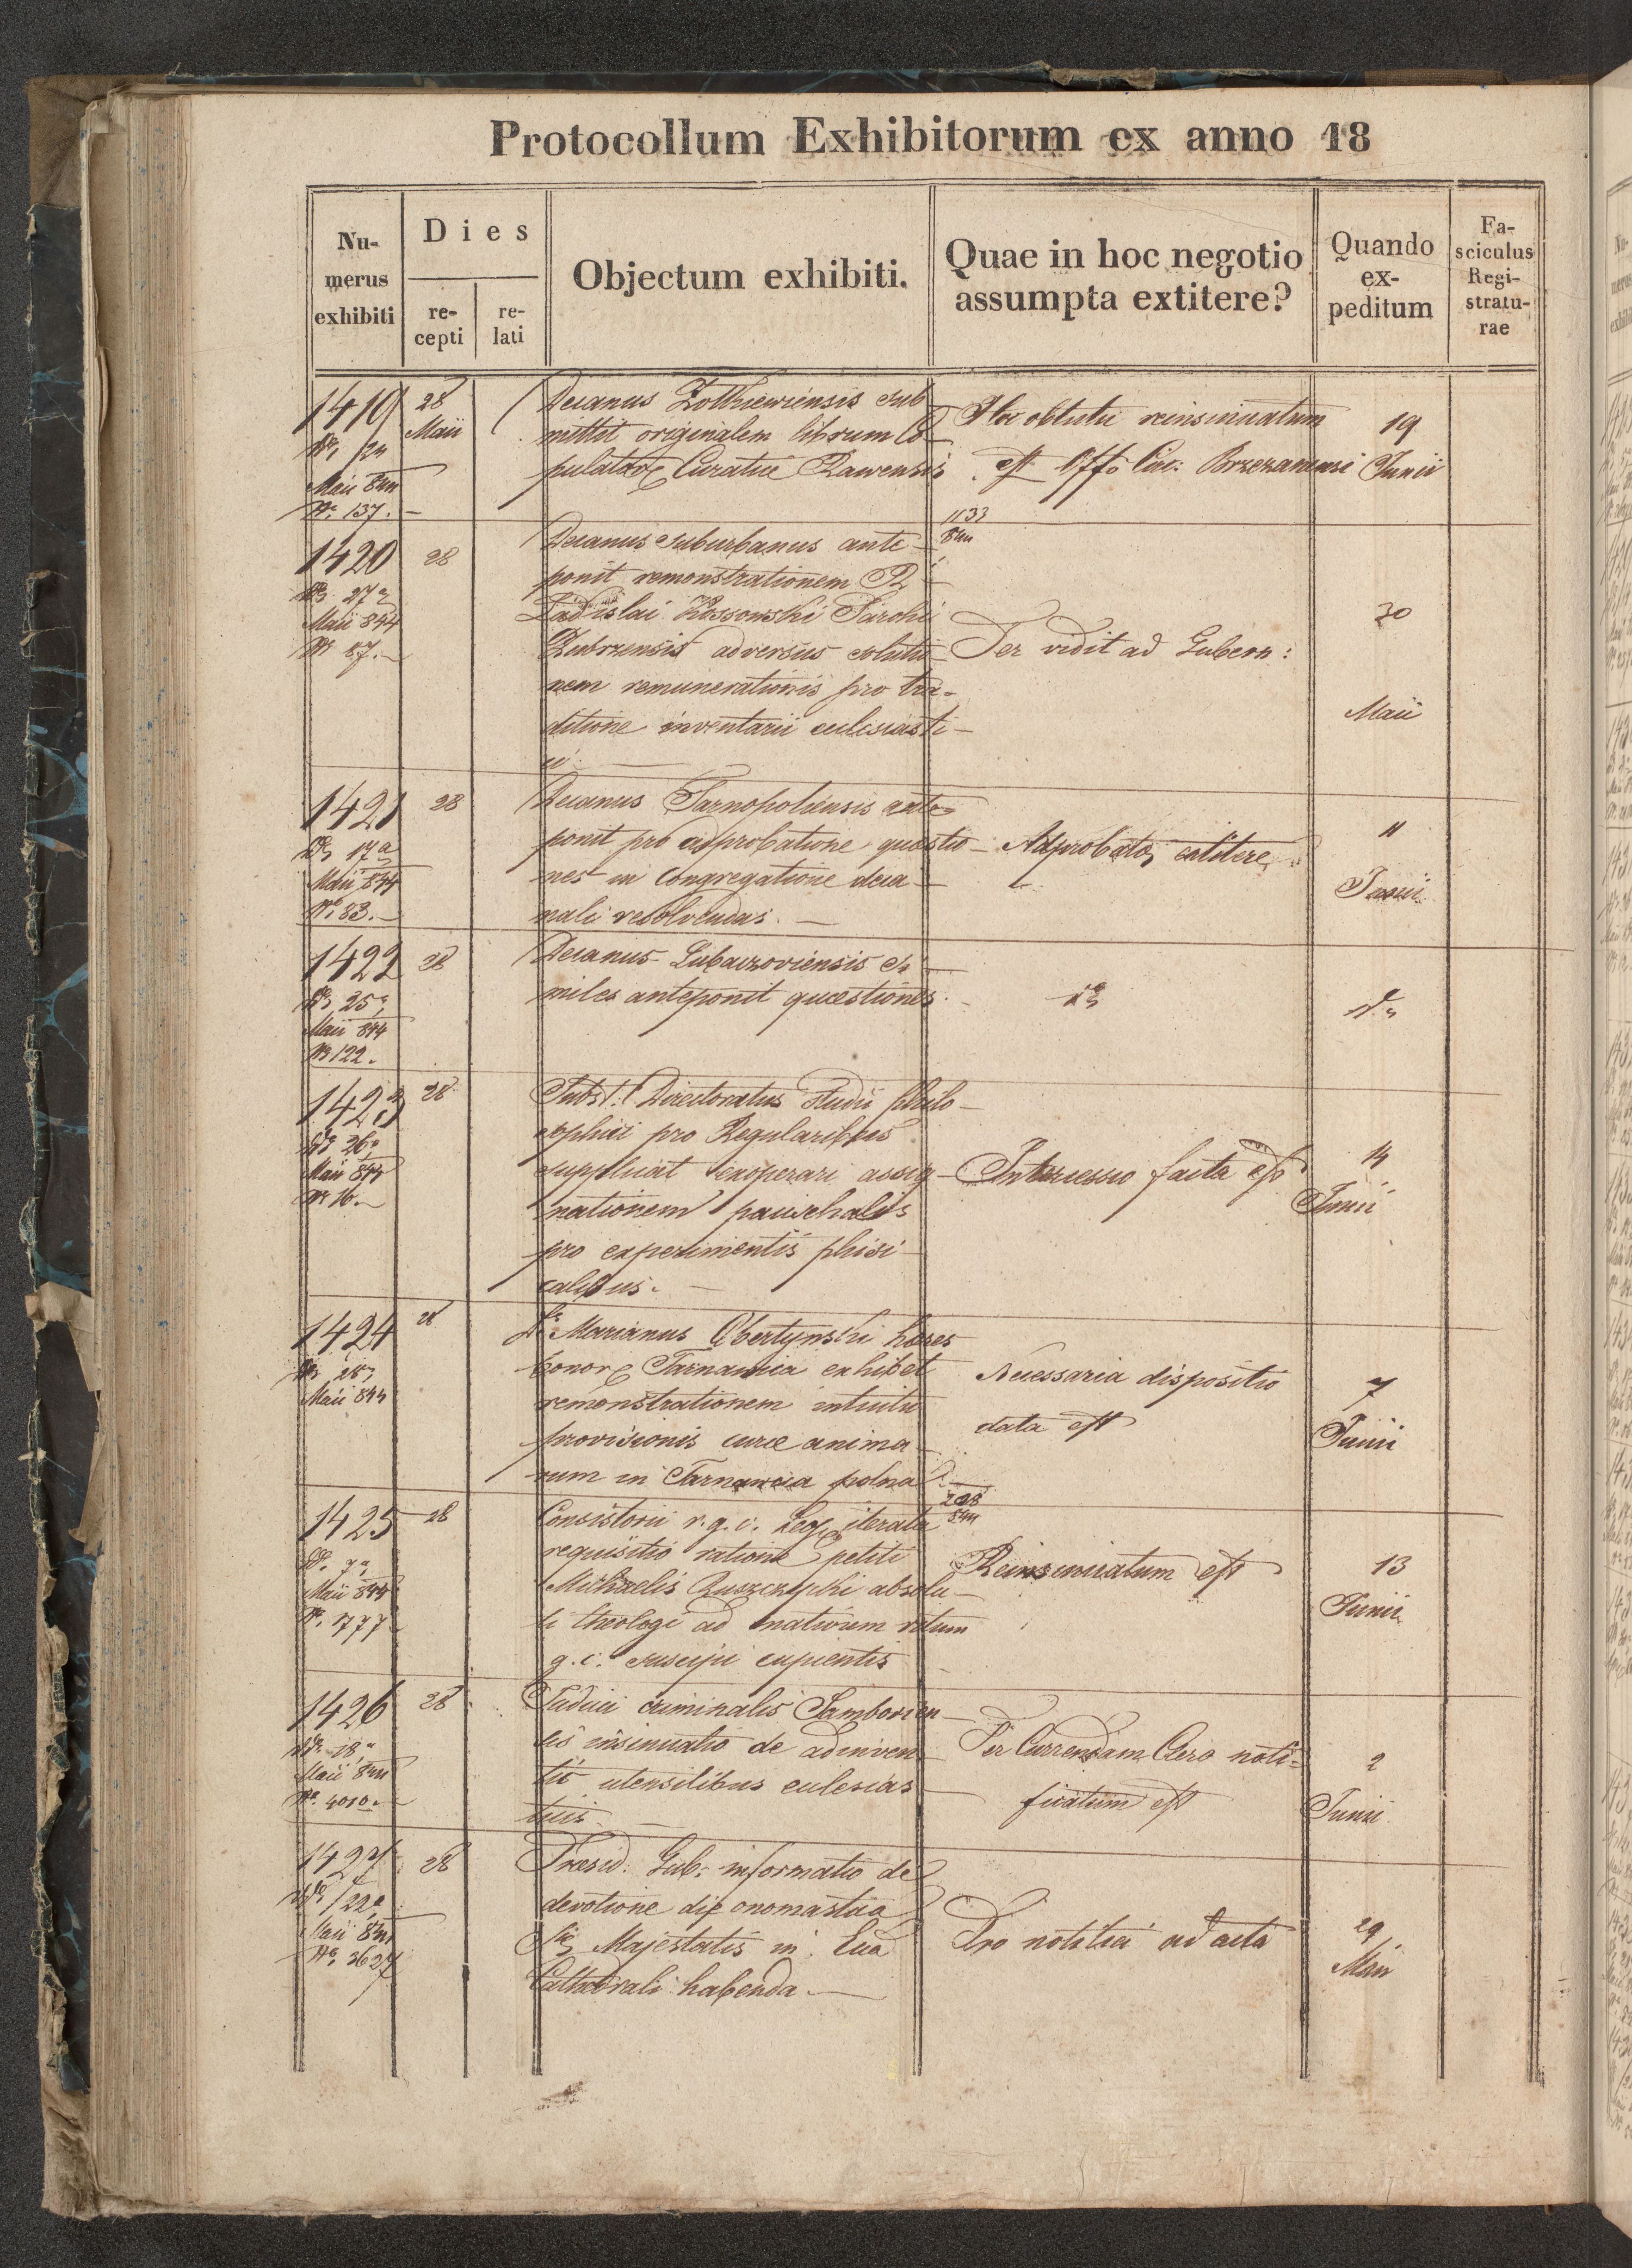 Protocollum Exhibitorum ex anno 18
Nu-
merus
exhibiti
Dies
re-
cepti
re-
lati
Objectum exhibiti.
Quae in hoc negotio
assumpta extitere?
Quando
ex-
peditum
Fa-
sciculus
Regi-
stratu-
rae
1419
Maii 844
Nr. 137.
28
Maii
Decanus Zolkiewiensis sub
mittit originalem librum Co
pulator Curatiæ Rawensis
Hoc obtutu reinsinuatum
est Offo Circ. Brzezanensi
19
Junii
1420
de 27a
Maii 844
Nr 87.
28
Decanus suburbanus ante-
ponit remonstrationem R
Ladislai Kossowski Parochi
Zubrzensis adversus solutio
nem remunerationis pro tra-
ditione inventarii eclesiasti-
ci.
1133
844
Per vidit ad Gubern:
30
Maii
1421
de 17a
Maii 844
Nr. 83.
28
Decanus Tarnopoliensis ante-
ponit pro approbatione questio-
nes in Congregatione deca-
nali resolvendas.
Adprobatæ extitere
11
Junii
1422
de 25a
Maii 844
Nr 122.
28
Decanus Lubaczoviensis si-
miles anteponit quæstiones.
1423
de 26a
Maii 844
Nr 16.
28
Subst. Directoratus studii philo-
sophici pro Regularibus
supplicat exoperari assig-
nationem pauschalis
pro experimentis phisi-
calibus.
Intercessio facta est
14
Junii
1424
de 28
Maii 844
28
Marianus Obertynski hæres
bonor Tarnawica exhibet
remonstrationem intuitu
provisionis curæ anima-
rum in Tarnawica polna
Necessaria dispositio
data est
7
Junii
1425
de 7a
Maii 844
Nr. 777
28
Consistorii r. g. c. Leop iterata
requisitio ratione petiti
Michaelis absolu-
ti theologi ad nativum ritum
g. c. suscipi cupientis
844
Reinsinuatum est
13
Junii
1426
de 18a
Maii 844
Nr. 4010.
28
Judicii criminalis Samborien-
sis insinuatio de adinven-
tis utensilibus eclesias-
ticis
Per Currendam Clero noti-
ficatum est
2
Junii
1427
de 22a
Maii 844
Nr. 3627
28
Præsid. Gub. informatio de
devotione die onomastica
Majestatis in Ecca
Cathedrali habenda.
Pro notitia ad acta
29
Maii